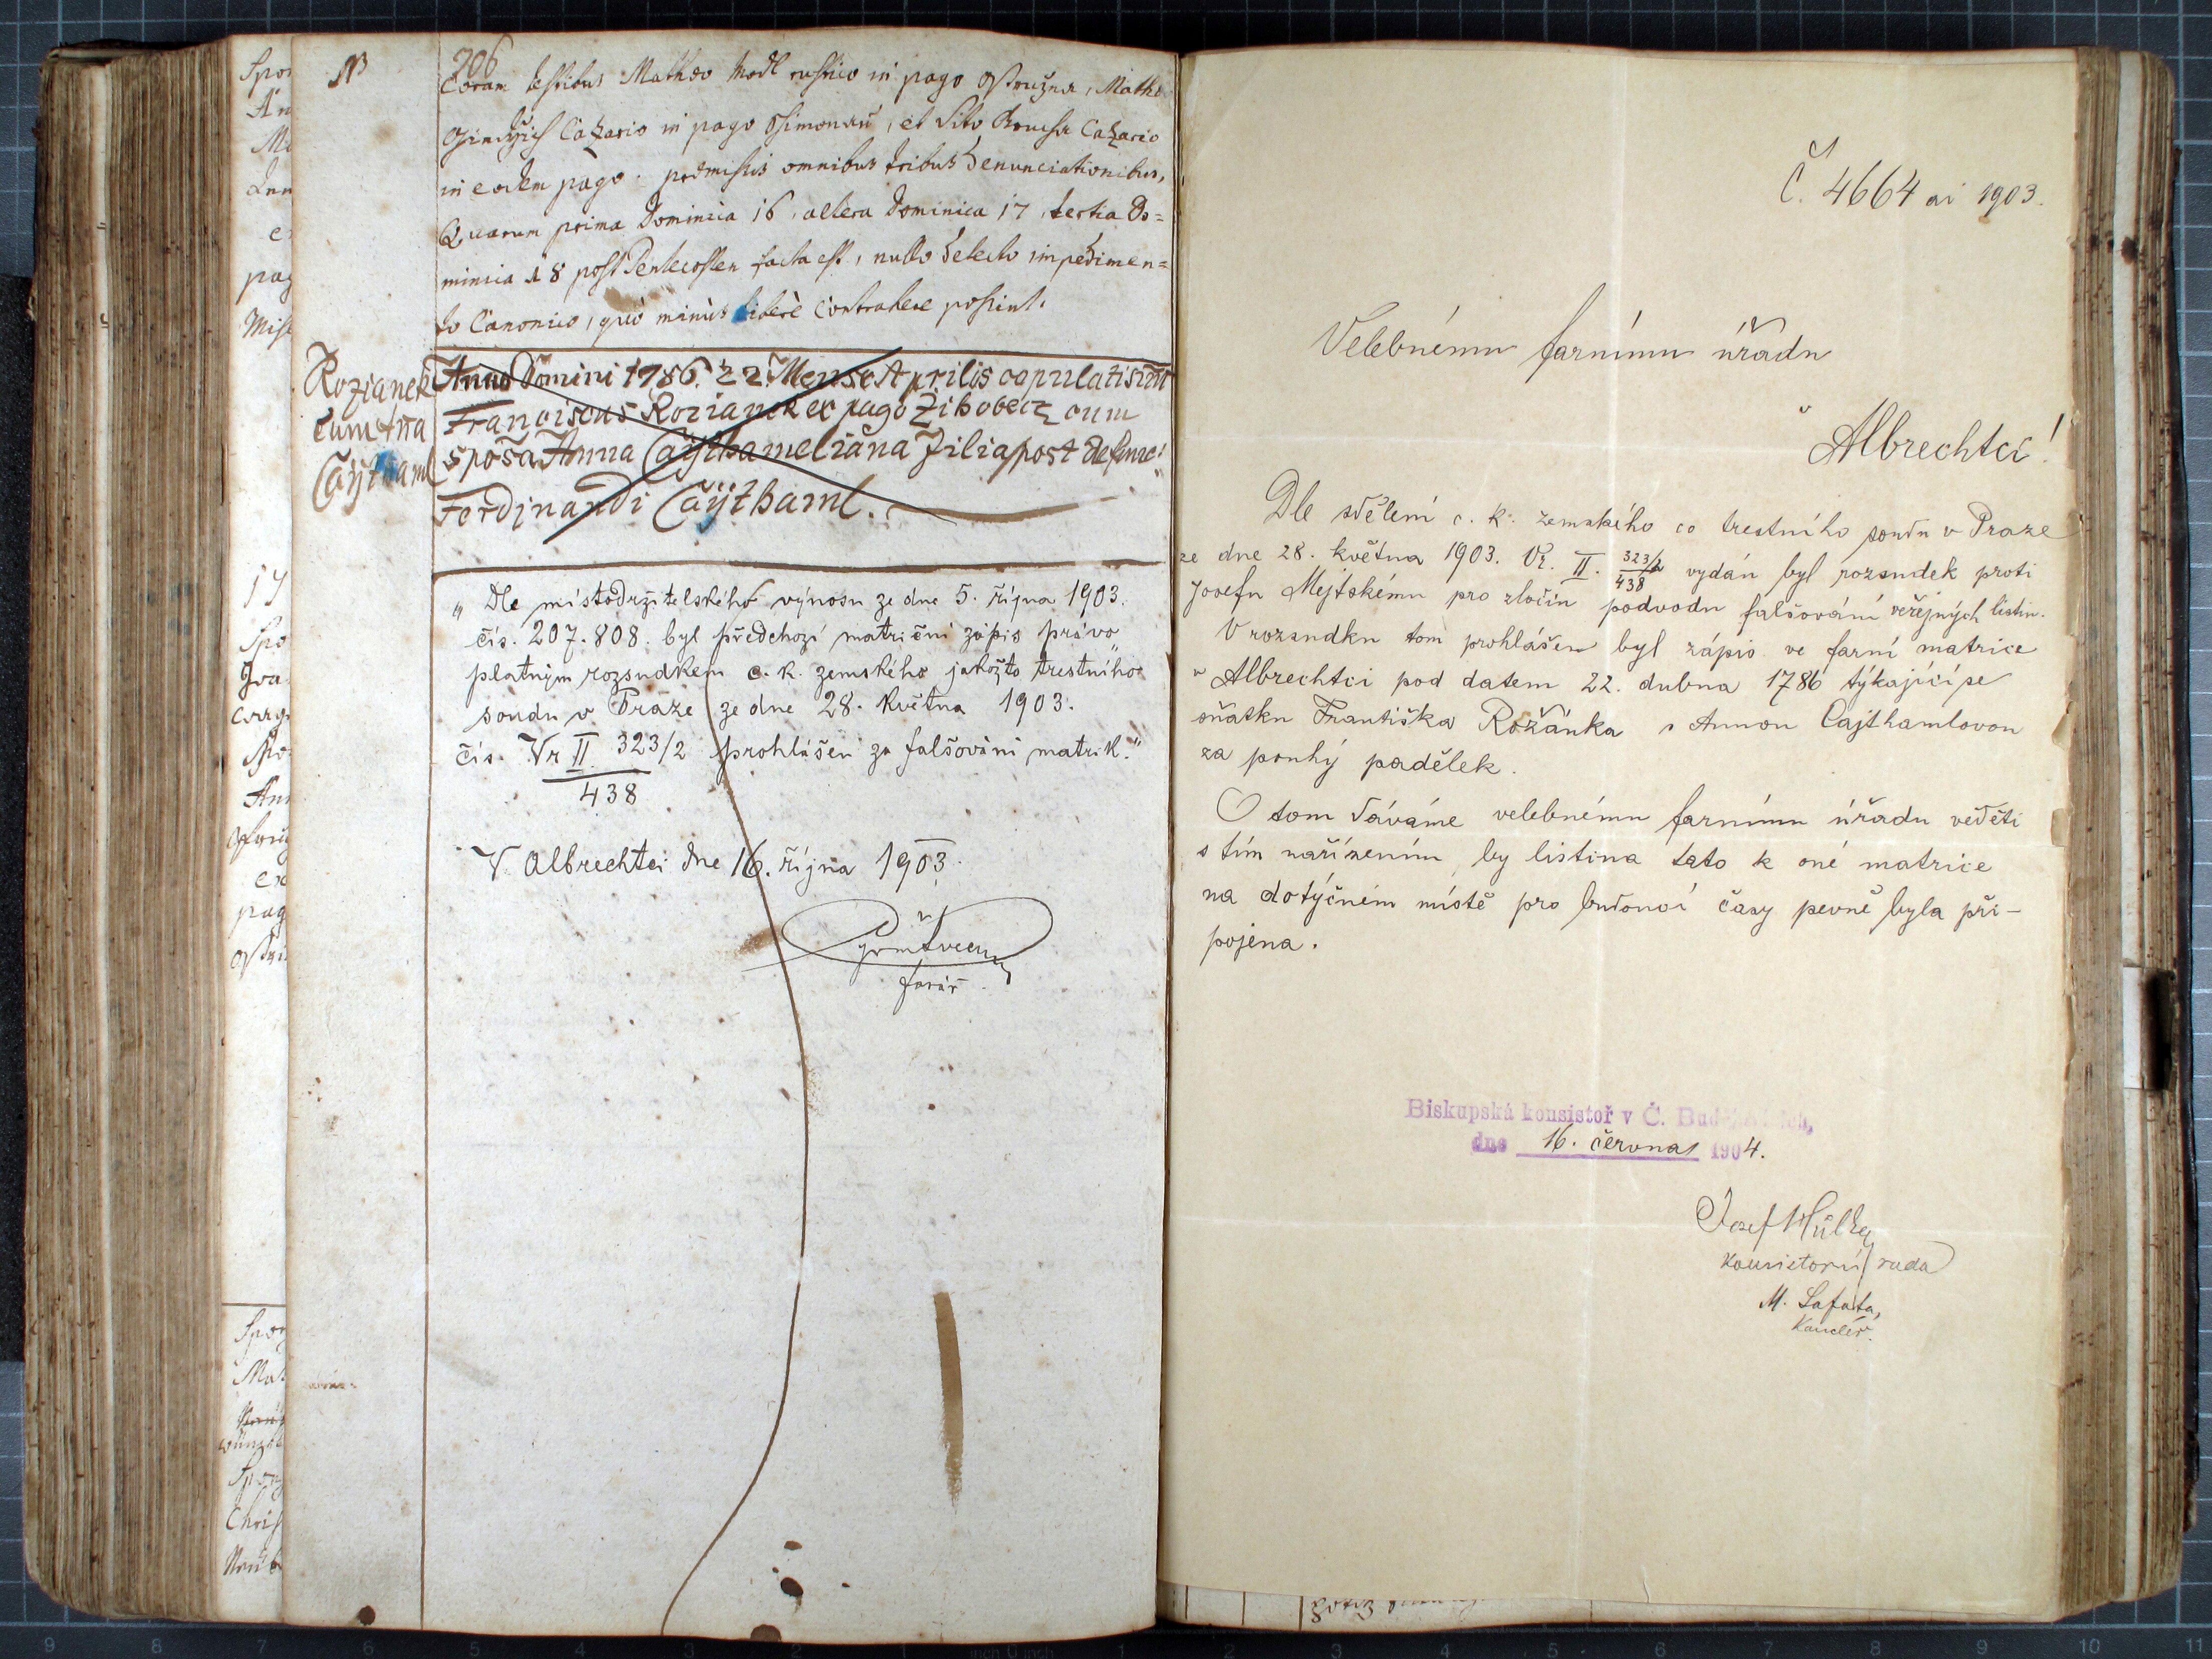 206
Coram testibus Mathæo Modl rustico in pago
in eodem pago. præmissis omnibus tribus denunciationibus,
Quarum prima Dominica 16, altera Dominica 17, tertia Do=
minica 18 post Pentecosten facta est, nullo detecto impedimen=
to Canonico, quò minùs liberè Contrahere possint.
Rozianek
cum Aña
Cäÿthaml
Anno Domini 1786. 22. Mense Aprilis copulati sunt
Franciscus Rozianek ex pago Žihobecz cum
spoša Anna Cäÿthameliana Filia post defunc:
Ferdjnandi Cäÿthaml.
„Dle místodržitelského výnosu ze dne 5. října 1903.
čís. 207.808. byl předchozí matriční zápis právo
platným rozsudkem c. k. zemského jakožto trestního
soudu v Praze ze dne 28. května 1903.
čís. Vr II. 323/2 prohlášen za falšování matrik."
438
V Albrechtci dne 16. října 1903.
farář.
Č. 4664 ai 1903.
Velebnému farnímu úřadu
v Albrechtci!
Dle sdělení c. k. zemského co trestního soudu v Praze
ze dne 28. května 1903. Vr. II. 323/2 vydán byl rozsudek proti
438
Josefu Mejtskému pro zločin podvodu falšování veřejných listin.
V rozsudku tom prohlášen byl zápis ve farní matrice
v Albrechtci pod datem 22. dubna 1786 týkající se
sňatku Františka Rožánka s Annou Cajthamlovou
za pouhý padělek.
O tom dáváme velebnému farnímu úřadu věděti
s tím nařízením, by listina tato k oné matrice
na dotýčném místě pro budoucí časy pevně byla při-
pojena.
Biskupská konsistoř v Č. Budějovicích,
dne 16. června 1904.
Josef Hůlka
konsistorní rada
M. Lafata,
Kancléř.